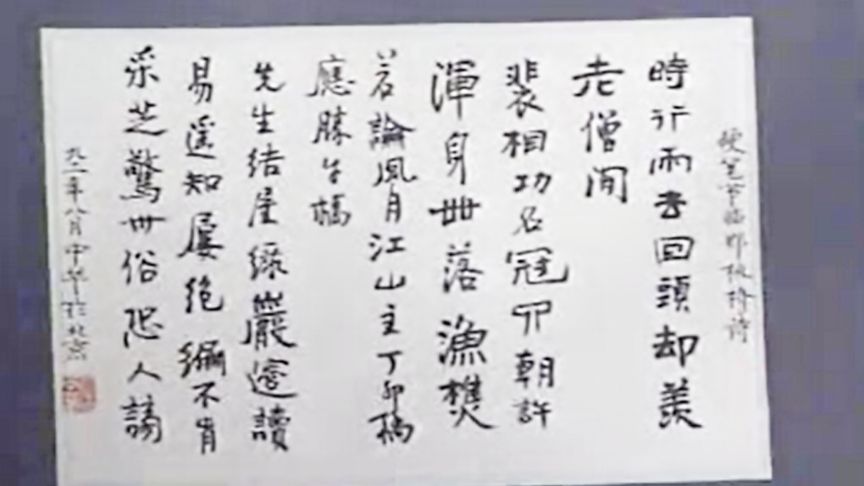 硬笔节临郑板桥诗
時行雨去回頭却羨
老僧閒
裴相功名冠四朝許
渾身世落漁樵
若論風月江山主丁卯橋
應勝午橋
先生結屋綠巖邊讀
易遥知屢絕編不肯
采芝驚世俗恐人謗
九二年八月中华於北京